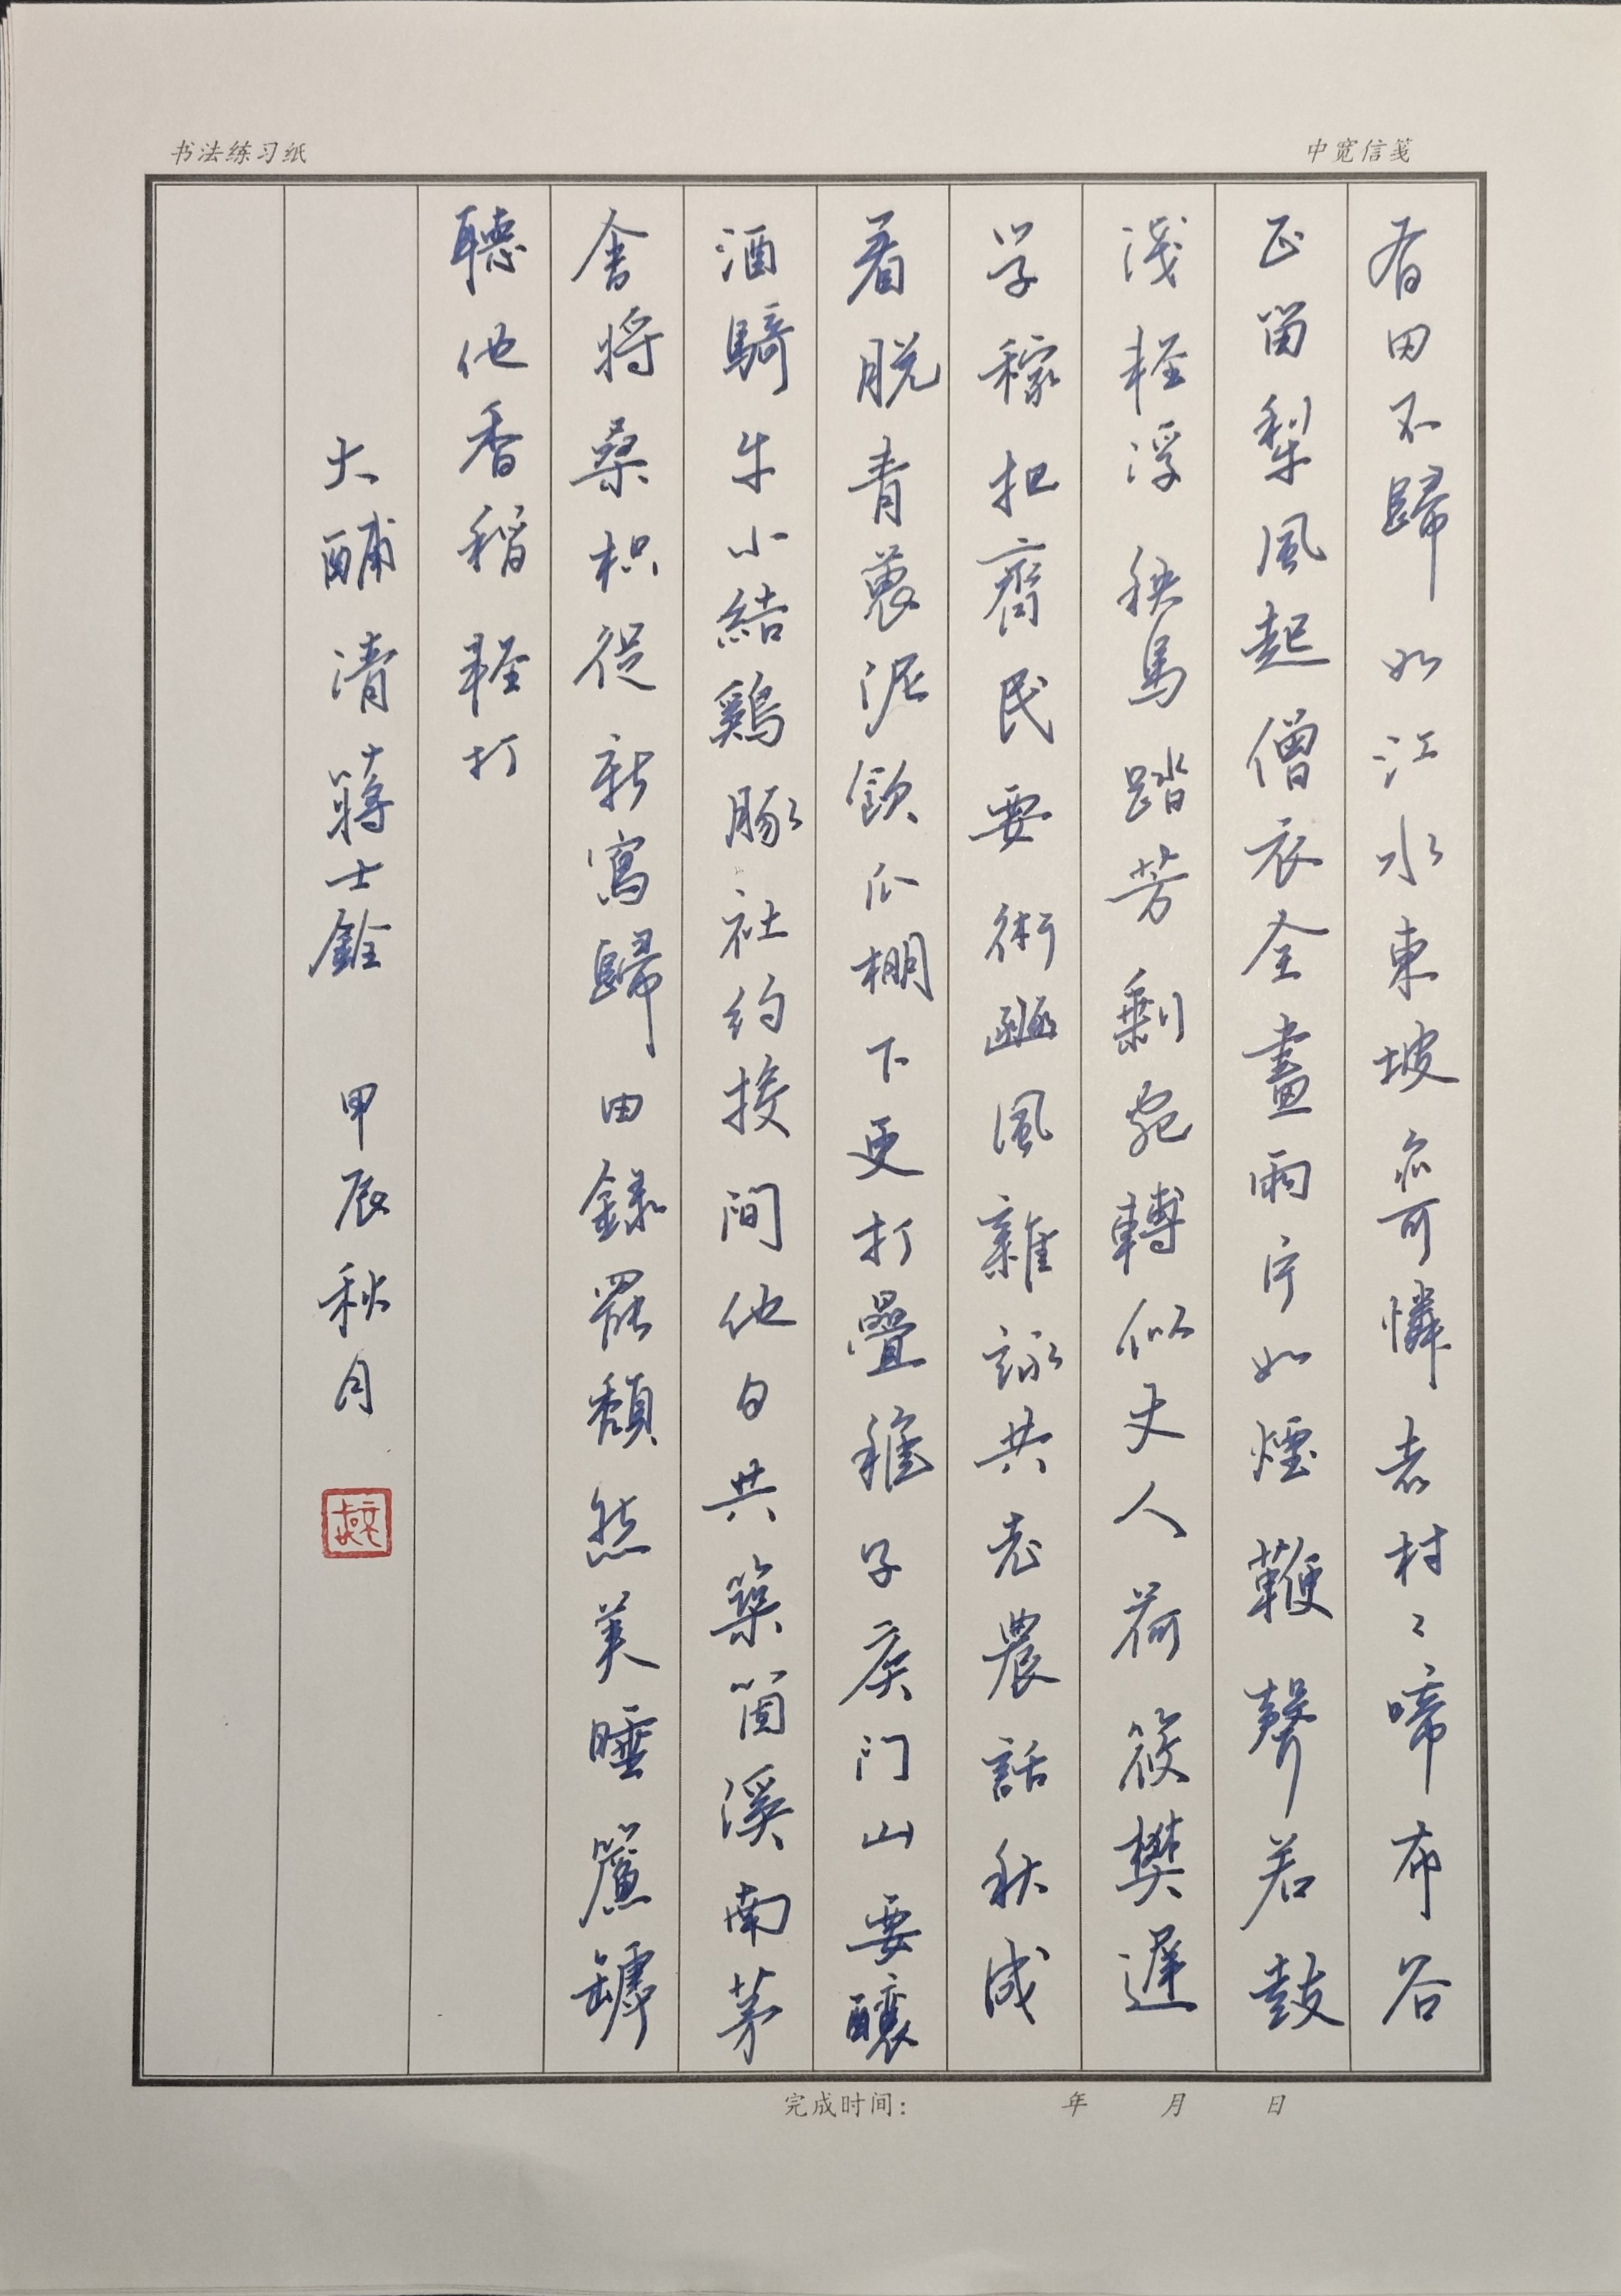 书法练习纸
中宽信笺
有田不歸如江水東坡奇憐煮村々啼布谷
正畄犁風起僧衣全畫雨字如煙鞭聲若鼓
淺輕浮秧馬踏芳剩宛轉似丈人荷筱樊遲
学稼把齊民要術豳風雜詠共老農話秋成
看脱青蓑泥飲瓜棚下更打疊稚子矦门山要釀
酒騎牛小結鷄豚社約接间他日共築箇溪南茅
舍將桑枳從新寫歸田錄罷頹然美睡簾罅
聽他香稻輕打
大酺 清 蔣士銓 甲辰秋月
完成时间： 年 月 日